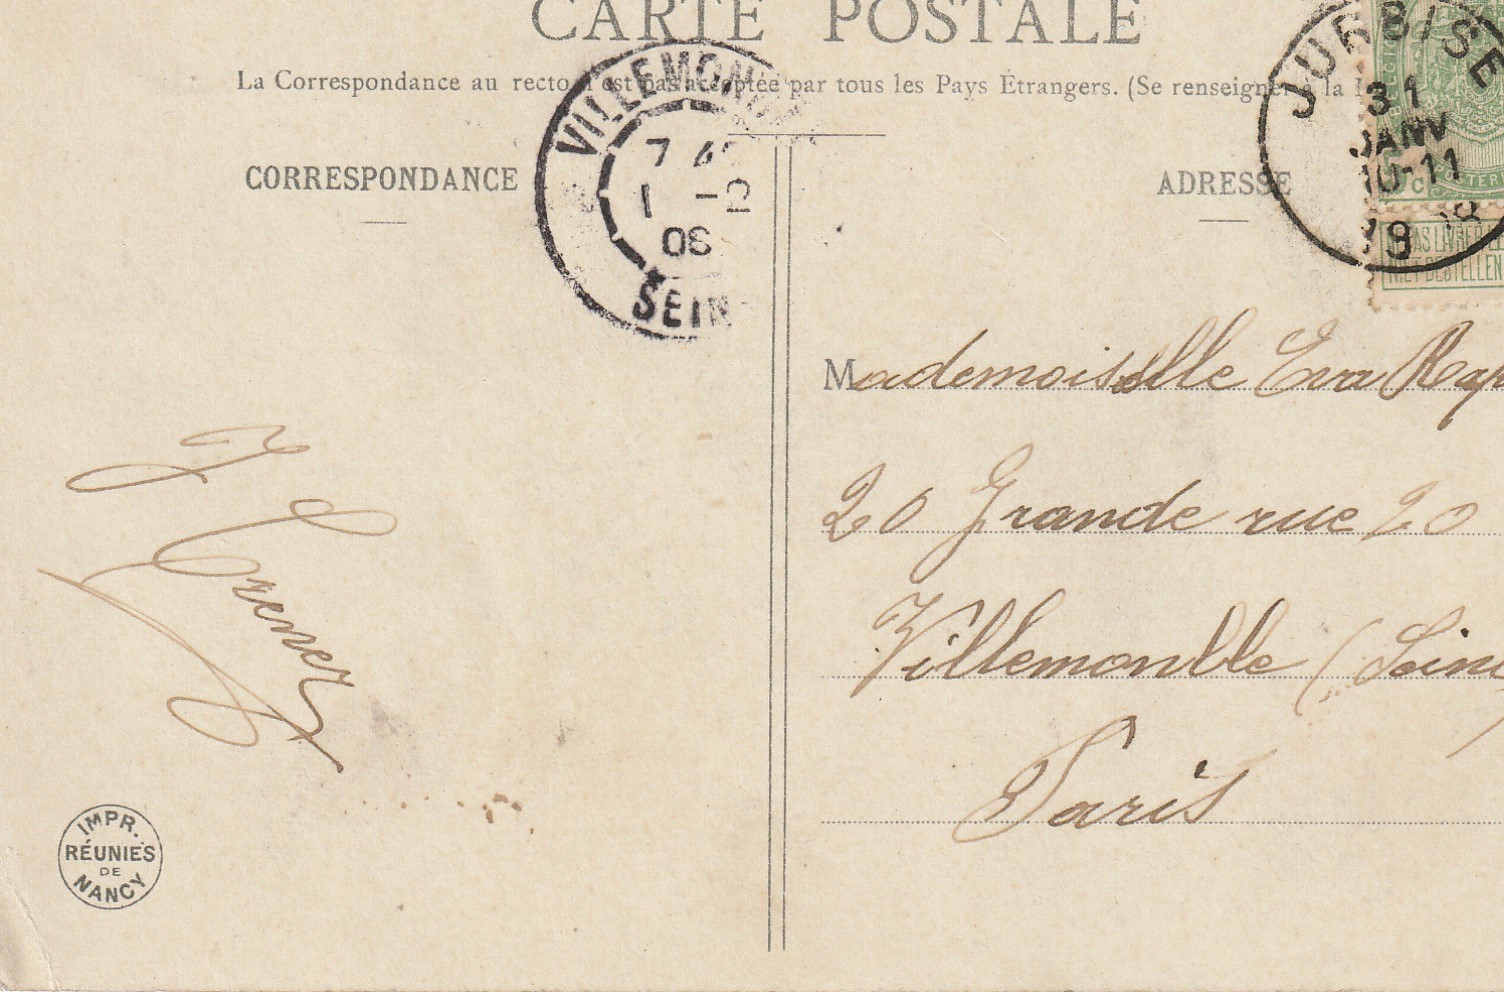 CARTE POSTALE
La Correspondance au recto n'est pas acceptée par tous les Pays Étrangers. (Se renseigner à la
CORRESPONDANCE
ADRESSE
VILLEMOM
7
1
08
SEIN
JURBISE
31
JANV
10-11
19 08
PAS LIVRER LE
NIET BESTELLEN
Mademoiselle Eva Rap
20 Grande rue 20
Villemomble (Seine)
Paris
J
IMPR.
RÉUNIES
DE
NANCY